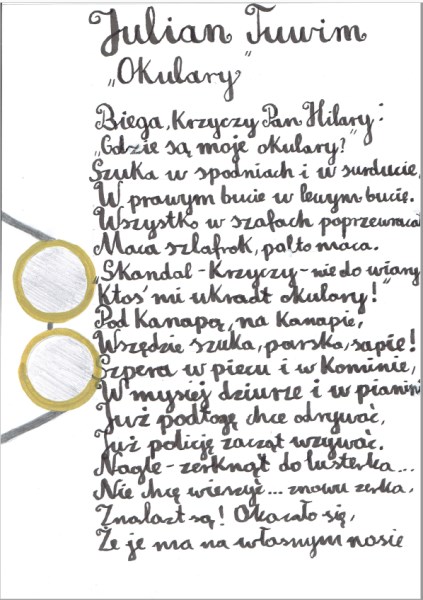 Julian Tuwim
„Okulary"
Biega, Krzyczy Pan Hilary:
„Gdzie są moje okulary?"
Szuka w spodniach i w surducie,
W prawym bucie w lewym bucie.
Wszystko w szafach poprzewracał
Maca szlafrok, palto maca.
„Skandal - Krzyczy - nie do wiary
Ktoś mi ukradł okulary!"
Pod Kanapą, na Kanapie,
Wszędzie szuka, parska, sapie!
Szpera w piecu i w Kominie,
W mysiej dziurze i w pianinie
Już podłogę chce odrywać,
Już policję zaczął wzywać.
Nagle - zerknął do lusterka...
Nie chcę wierzyć... znowu zerka.
Znalazł są! Okazało się,
Że je ma na własnym nosie